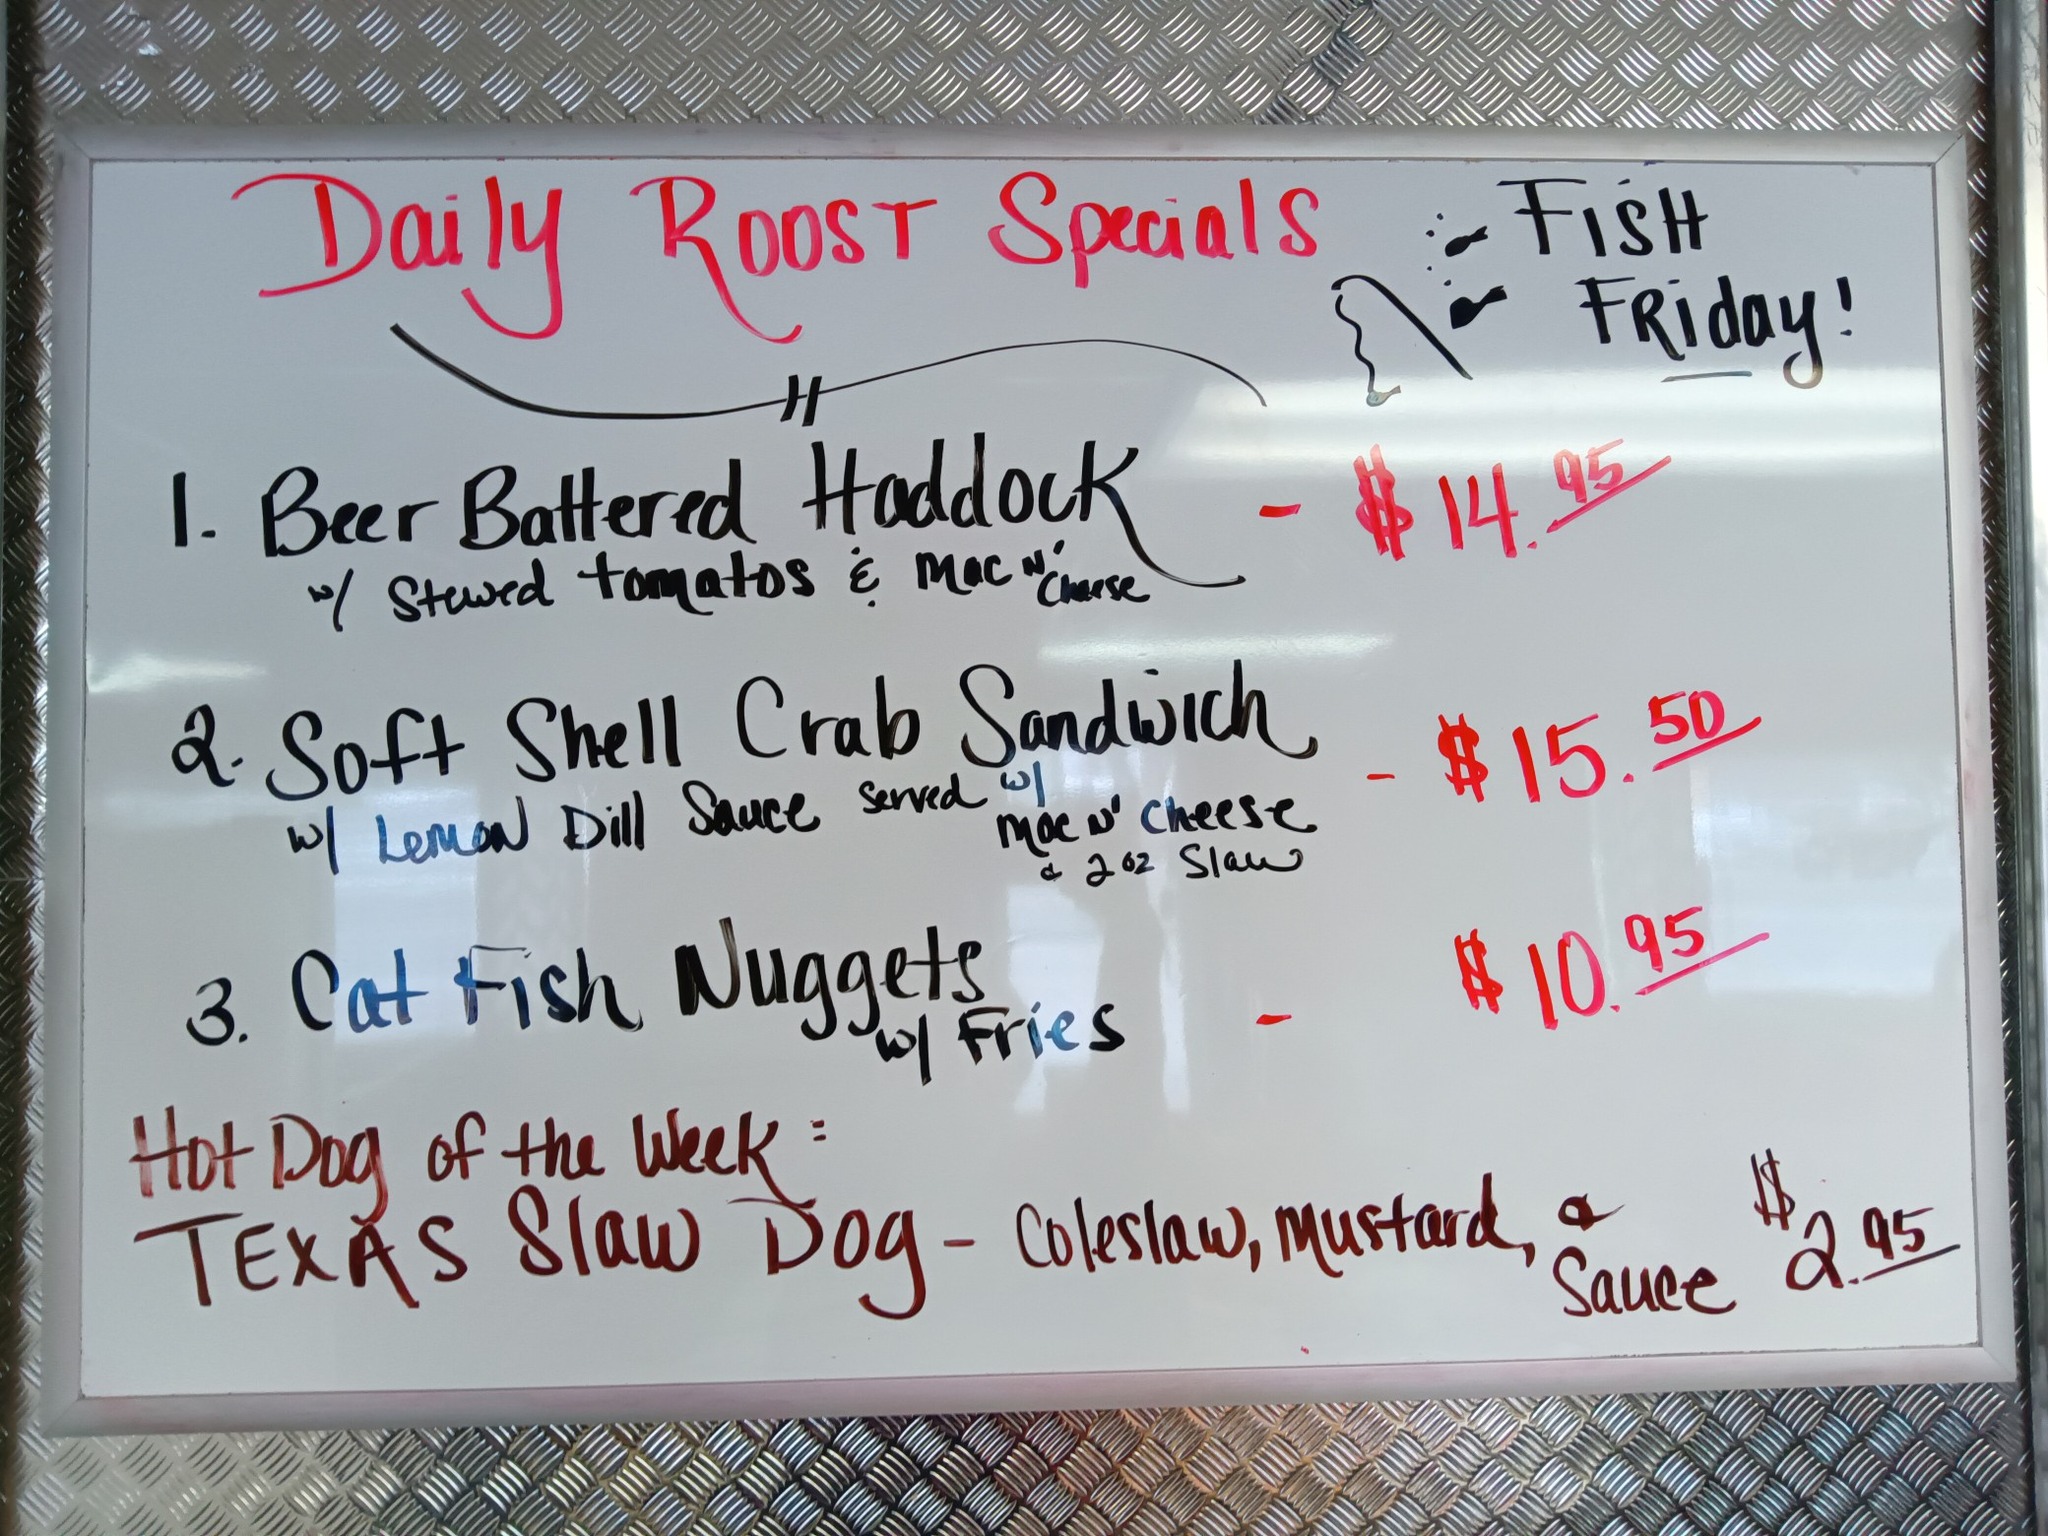 Daily Roost Specials
Fish
Friday!
1. Beer Battered Haddock - $14.95
w/ Stewed tomatos & Mac N' Cheese
2. Soft Shell Crab Sandwich - $15.50
w/ Lemon Dill Sauce served w/
Mac N' Cheese
& 2 oz Slaw
3. Cat Fish Nuggets
w/ Fries - $10.95
Hot Dog of the Week:
TEXAS Slaw Dog - Coleslaw, Mustard, &
Sauce $2.95